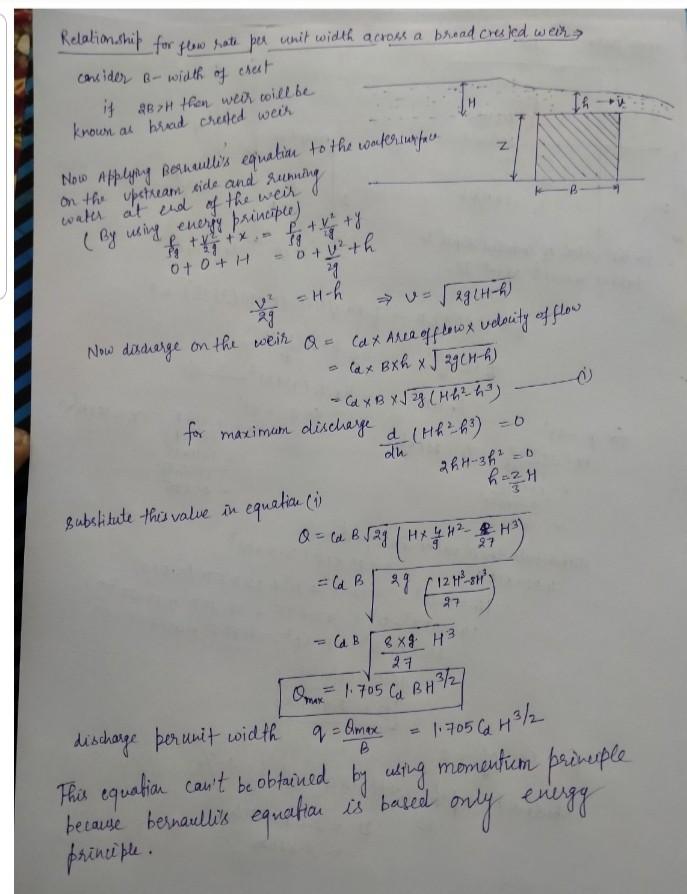 Relationship for flow rate per unit width across a broad crested weir →
consider B- width of crest
if 2B>H then weir will be
known as broad crested weir
H
h → v
Z
B
Now Applying Bernaulli's equation to the water surface
on the upstream side and running
water at end of the weir
(By using energy principle)
P/ρg + v²/2g + x = P/ρg + v²/2g + y
0 + 0 + H = 0 + v²/2g + h
v²/2g = H-h ⇒ v = √2g(H-h)
Now discharge on the weir Q = Cd x Area of flow x velocity of flow
= Cd x B x h x √2g(H-h)
= Cd x B x √2g(Hh²-h³) —— (i)
for maximum discharge d/dh (Hh²-h³) = 0
2hH-3h² = 0
h = 2/3 H
Substitute this value in equation (i)
Q = Cd B √2g (H x 4/9 H² - 8/27 H³)
= Cd B √2g (12H³-8H³/27)
= Cd B √8xg/27 H³
Qmax = 1.705 Cd BH^3/2
discharge per unit width q = Qmax/B = 1.705 Cd H^3/2
This equation can't be obtained by using momentum principle
because bernaulli's equation is based only energy
principle.